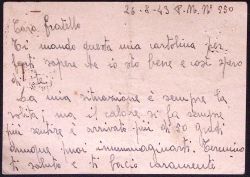 26-8-43 P.M. N° 550
Caro fratello
Ti mando questa mia cartolina per
farti sapere che io sto bene e così spero
di
La mia situazione è sempre la
solita ma il calore si fa sempre
più sempre è arrivato più di 50 gradi
dunque puoi immmaginarti. Termino
ti saluto e ti bacio caramente